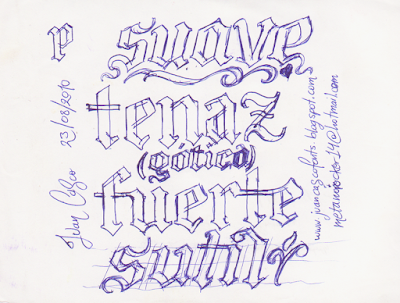 p
suave
tenaz
(gótica)
fuerte
sutil
23/08/2010
Juan Casco
www.juancascofonts.blogspot.com